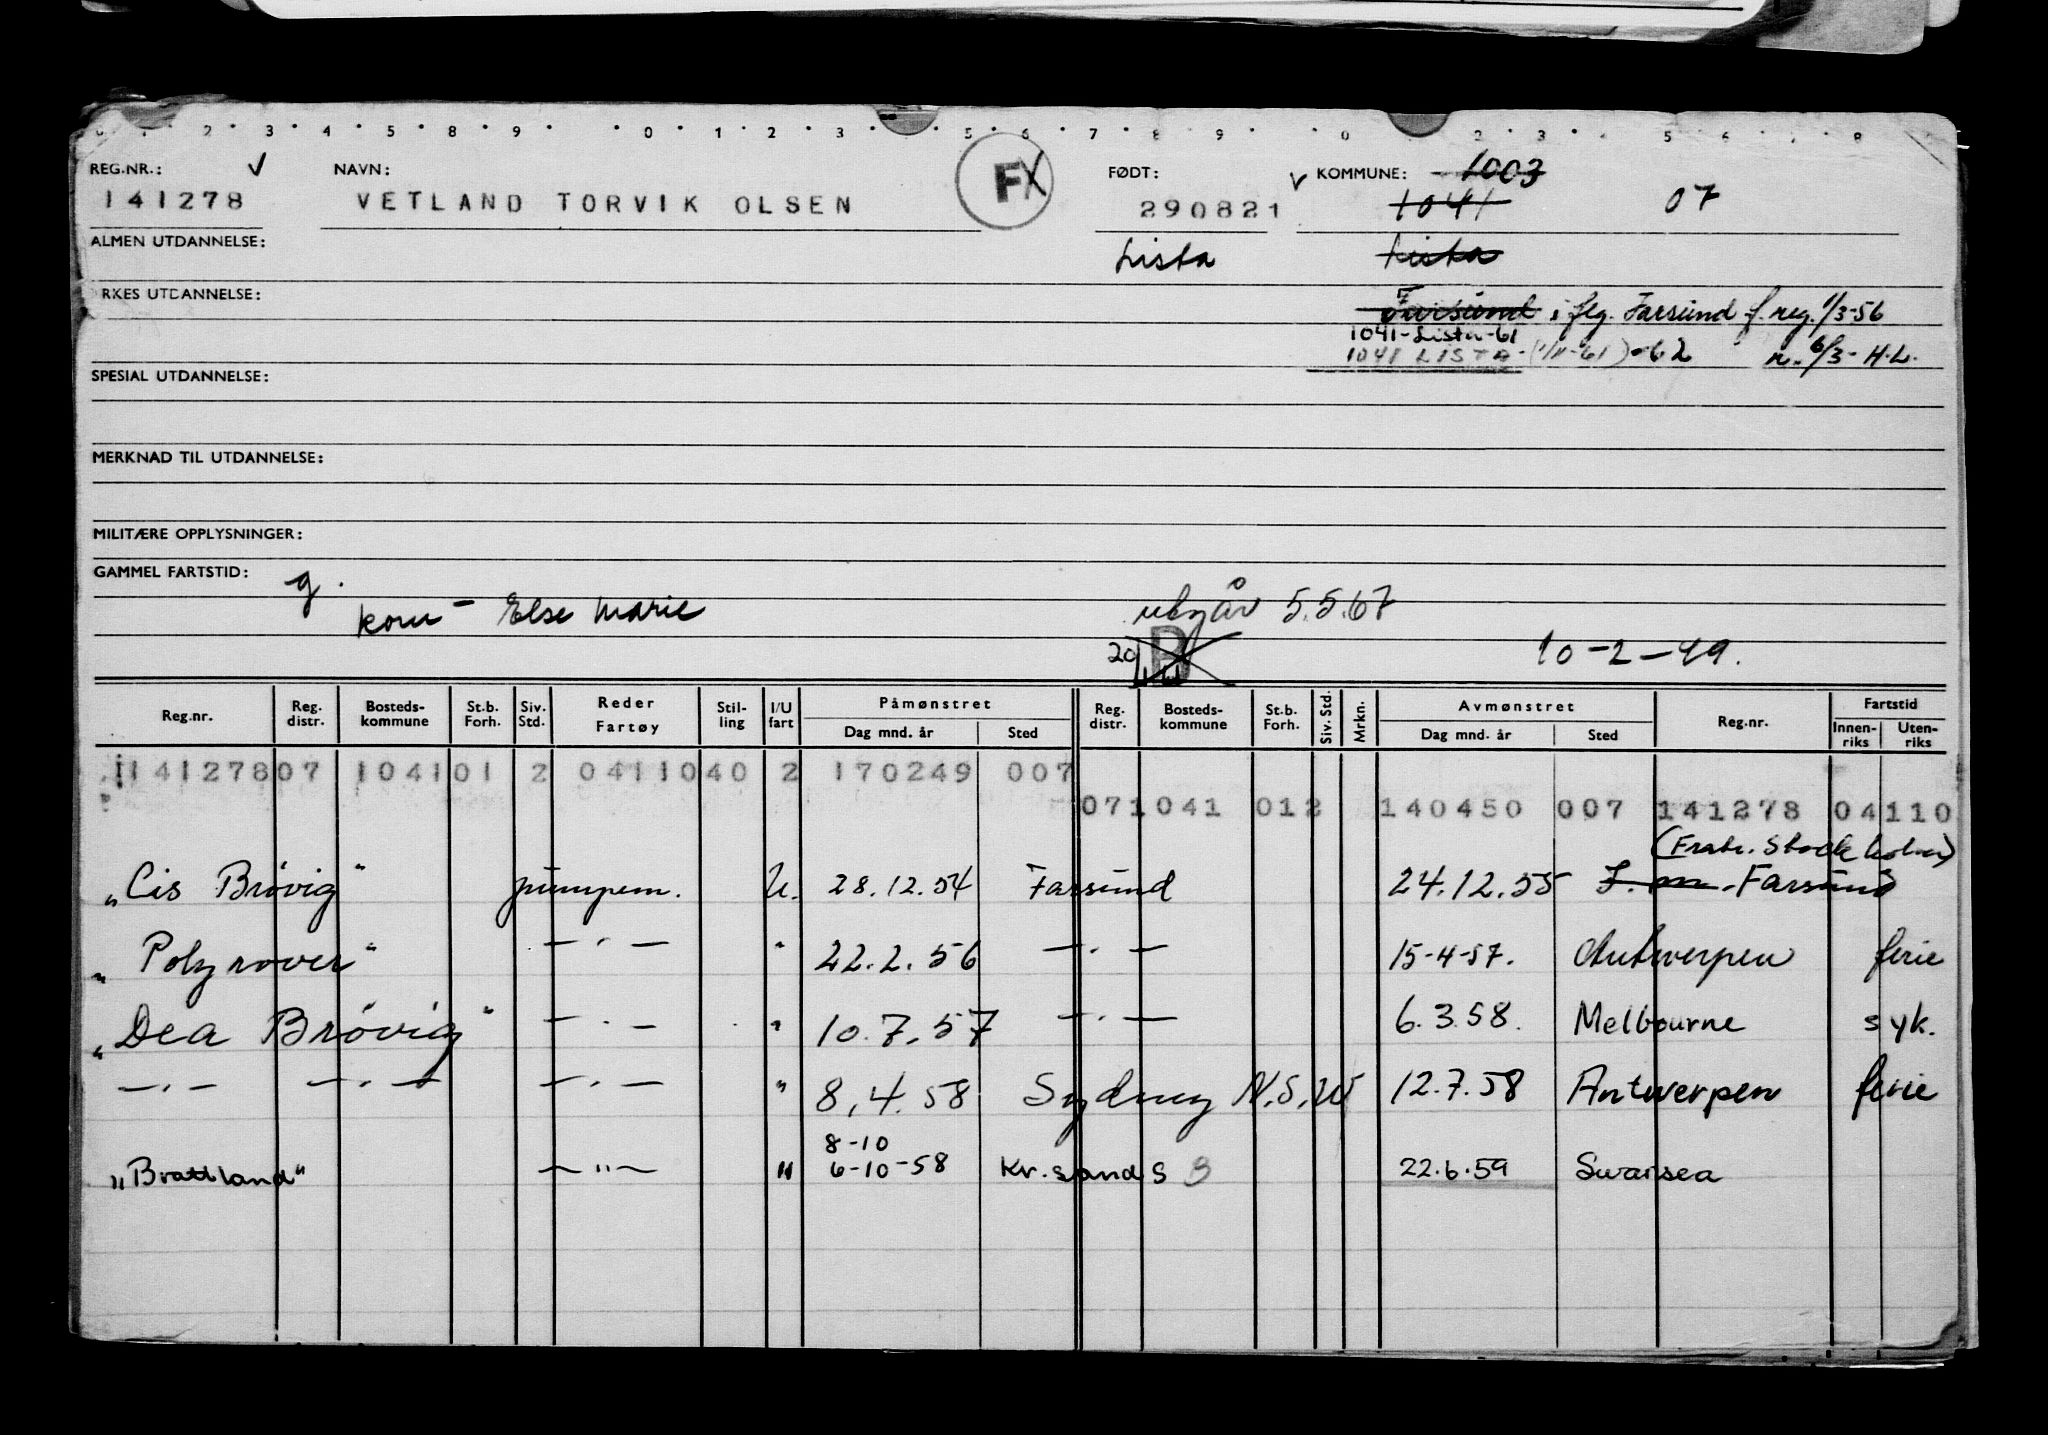 REG.NR.: NAVN: FX FØDT: KOMMUNE: 1003
141278 VETLAND TORVIK OLSEN 290821 1041 07
ALMEN UTDANNELSE: Lista Lista
RKES UTDANNELSE: Farsund i flg. Farsund f. reg. 1/3-56
1041-Lista-61
1041 LISTA-(1/11-61)-62 n. 6/3- H.L.
SPESIAL UTDANNELSE:
MERKNAD TIL UTDANNELSE:
MILITÆRE OPPLYSNINGER:
GAMMEL FARTSTID: g.
kom- Else Marie utgår 5.5.67
B 10-2-49.
Reg.nr. Reg. distr. Bosteds-kommune St.b. Forh. Siv. Std. Reder Fartøy Stil-ling I/U fart Påmønstret Dag mnd. år Sted Reg. distr. Bosteds-kommune St.b. Forh. Siv. Std. Mrkn. Avmønstret Dag mnd. år Sted Reg.nr. Fartstid Innen-riks Uten-riks
141278 07 1041 01 2 04110 40 2 170249 007
07 1041 01 2 140450 007 141278 04110
"Cis Brøvig" pumpem. U. 28.12.54 Farsund 24.12.55 Farsund
"Polyrover" — . — " 22.2.56 — . — 15-4-57. Antwerpen ferie
"Dea Brøvig" — . — " 10.7.57 — . — 6.3.58. Melbourne syk.
— . — — . — — . — " 8.4.58 Sydney N.S.W 12.7.58 Antwerpen ferie
8-10
"Brattland" — " — " 6-10-58 Kr.sand S 22.6.59 Swansea